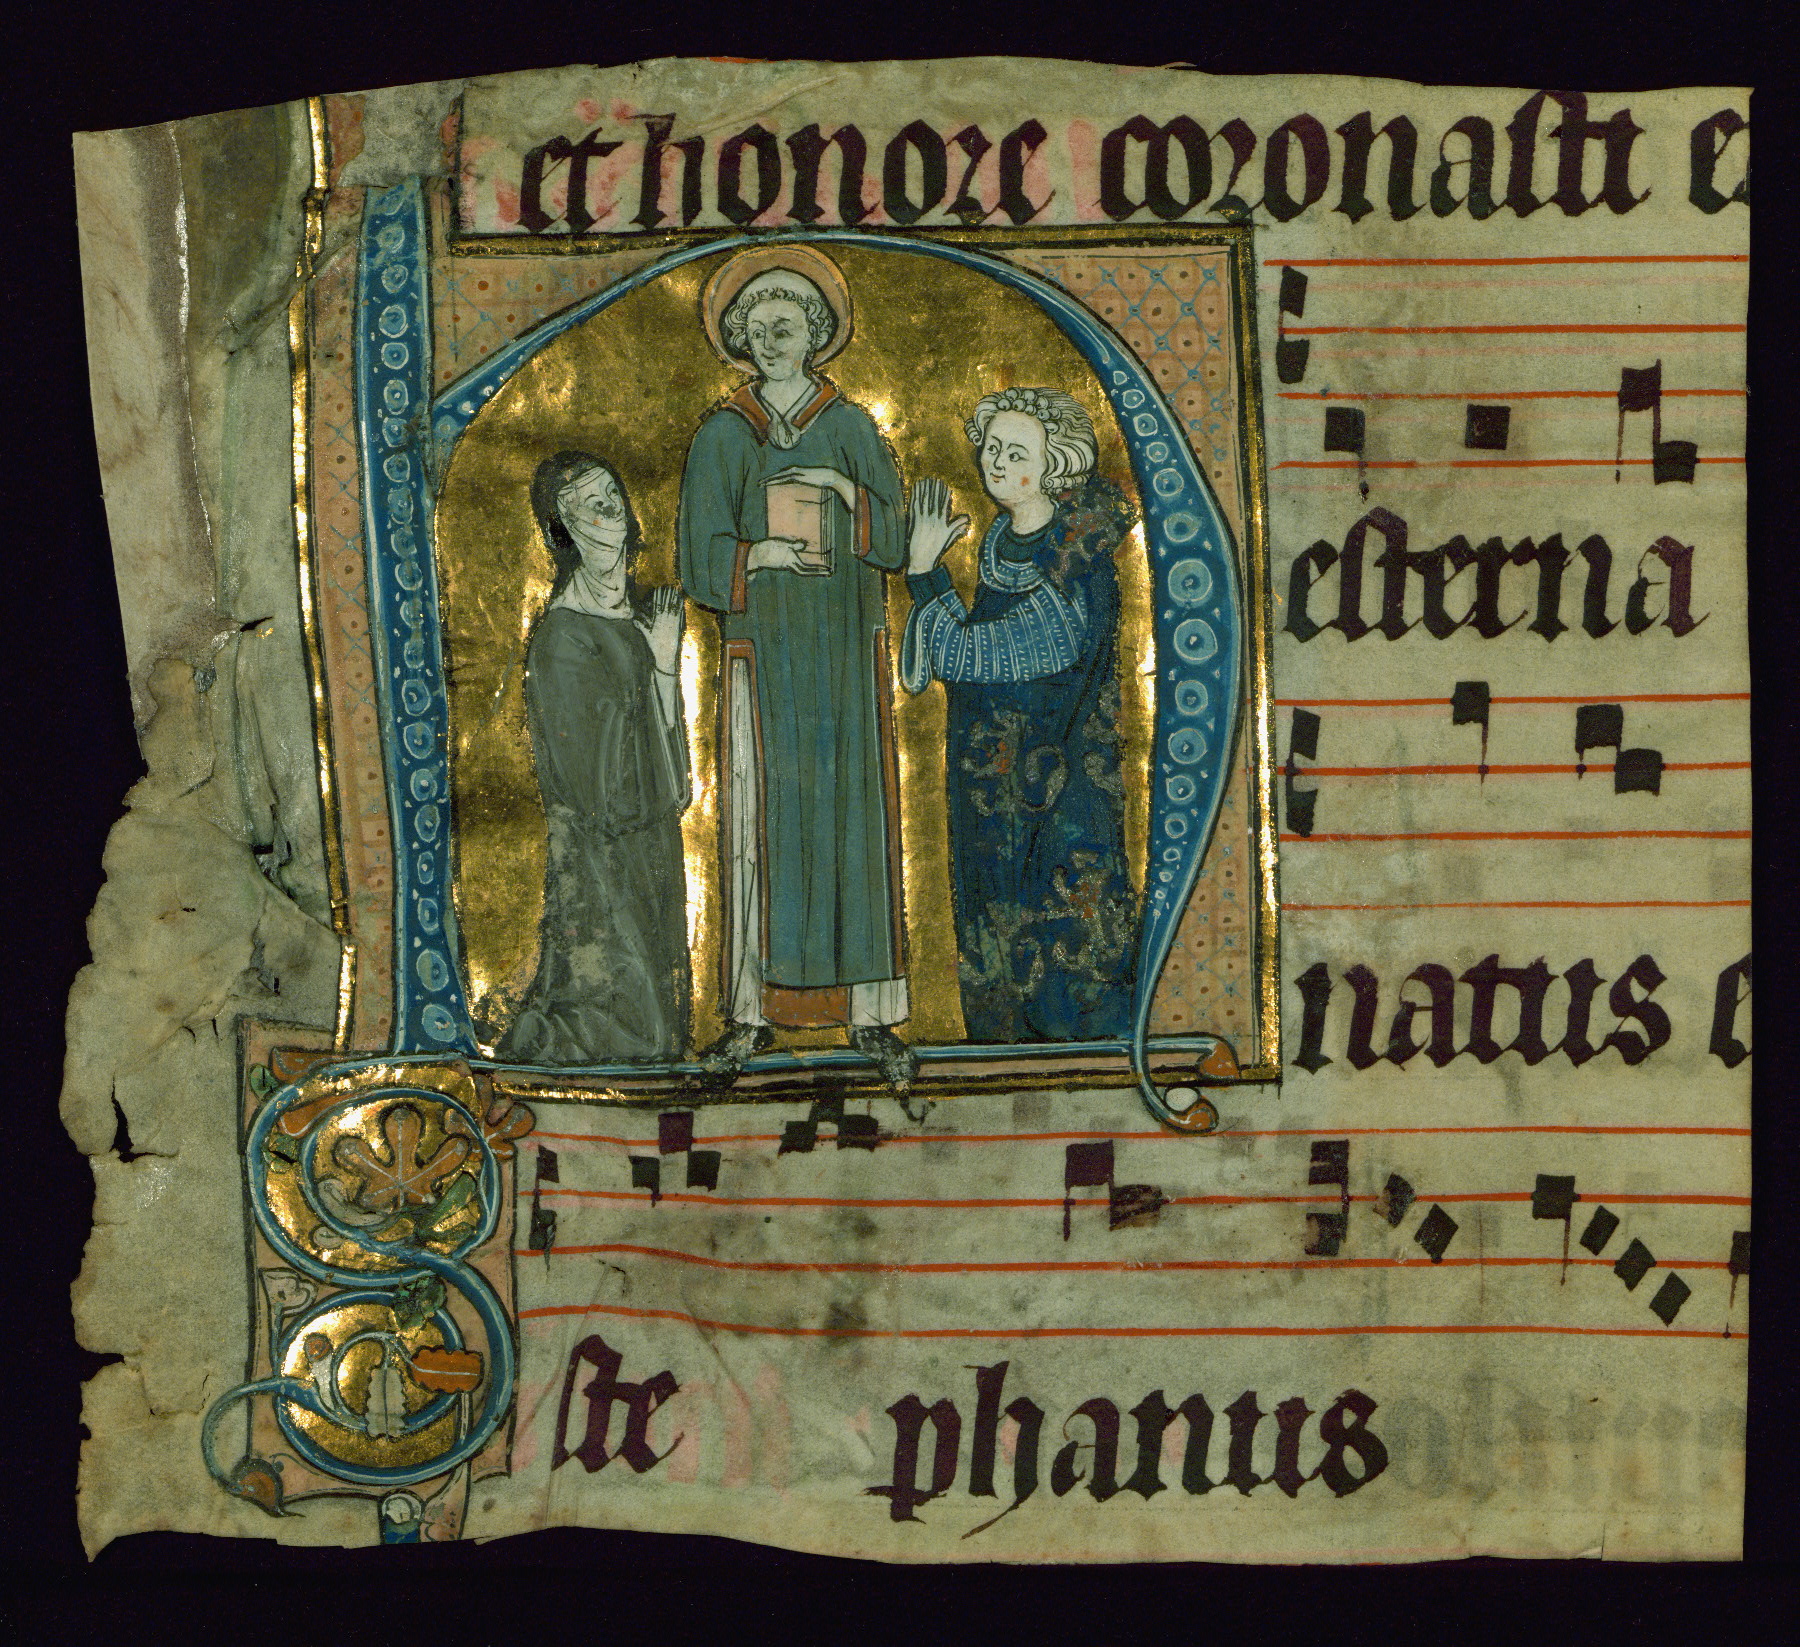 et honore coronasti e
Hesterna
natus e
Ste phanus